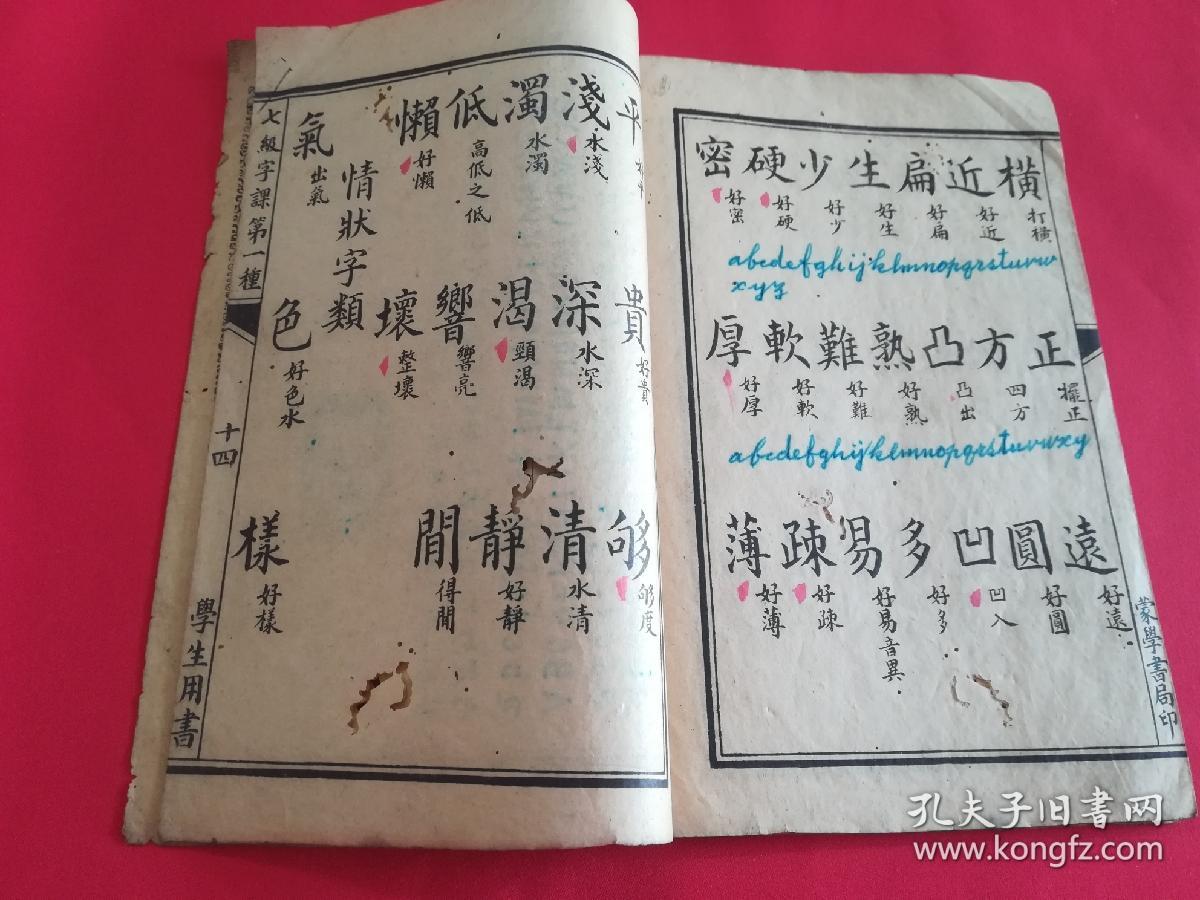 橫 打橫
近 好近
扁 好扁
生 好生
少 好少
硬 好硬
密 好密
abcdefghijklmnopqrstuvw
xyz
正 擺正
方 四方
凸 凸出
熟 好熟
難 好難
軟 好軟
厚 好厚
abcdefghijklmnopqrstuvwxy
遠 好遠
圓 好圓
凹 凹入
多 好多
易 好易音異
疎 好疎
薄 好薄
蒙學書局印
平
淺 水淺
濁 水濁
低 高低之低
懶 好懶
貴 好貴
深 水深
渴 頸渴
響 響亮
壞 整壞
够 够度
清 水清
靜 好靜
閒 得閒
情狀字類
氣 出氣
色 好色水
樣 好樣
七級字課第一種
十四
學生用書
孔夫子旧书网
www.kongfz.com